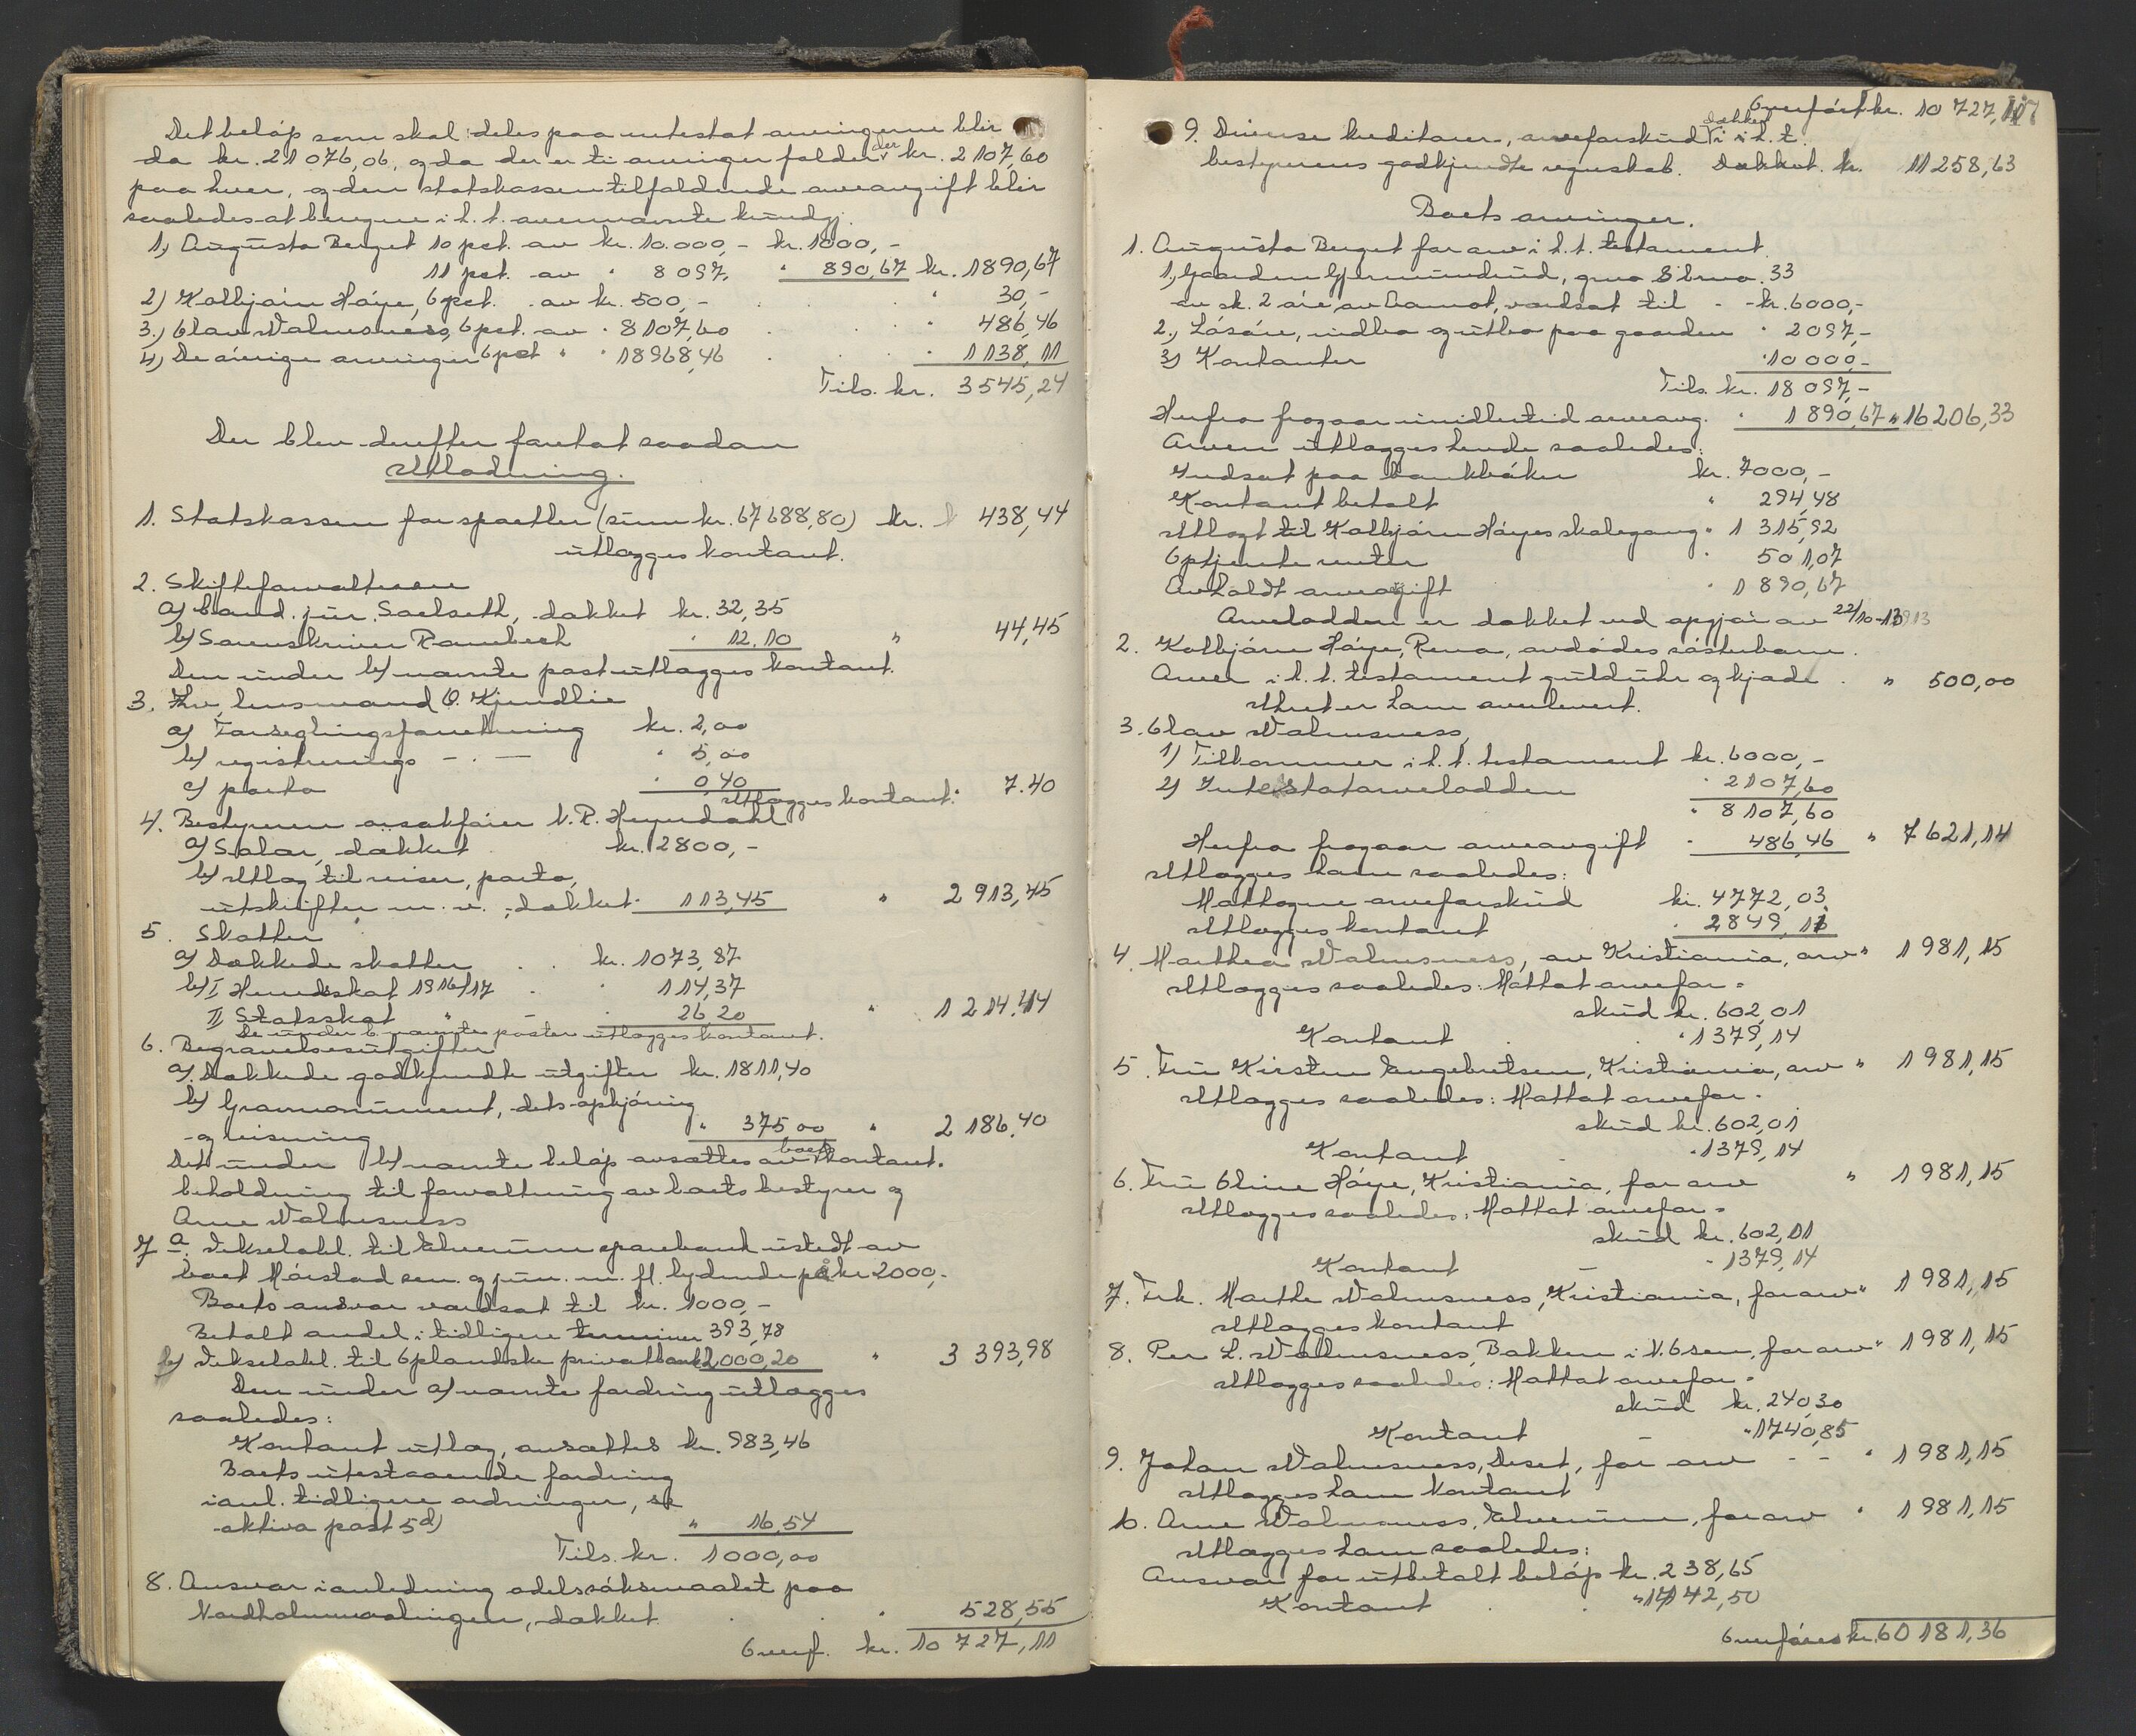 Det beløp som skal deles paa intestat arvingerne blir
da kr. 21 076,06, og da der er ti arvinger falder der kr. 2 107,60
paa hver, og den statskassen tilfaldende arveavgift blir
saaledes at beregne i h. t. overnævnte kundgj.
1) Augusta Berget 10 pct. av kr. 10.000,- kr. 1000,-
11 pct. av " 8 097, " 890,67 kr. 1890,67
2) Kolbjørn Høye, 6 pct. av kr. 500,- " 30,-
3.) Olav Valmsness, 6 pct. av " 8107,60 " 486,46
4) De øvrige arvinger 6 pct " " 18968,46 " 1138,11
Tils. kr. 3545,24
Der blev derefter foretat saadan
Utlodning.
1. Statskassen for sportler (sum kr. 67 688,80) kr. 438,44
utlægges kontant.
2. Skifteforvalteren
a) Cand. jur. Saelseth, dækket kr. 32,35
b) Sorenskriver Rambech " 12.10 " 44,45
Den under b) nævnte post utlægges kontant.
3. Fhv. lensmand O. Kjendlie
a) Forseglingsforretning kr. 2,00
b) registrerings - " - " 5,00
c) porto " 0,40
utlægges kontant. " 7.40
4. Bestyreren o.r.sakfører N. R. Heyerdahl
a) Salær, dækket kr. 2800,-
b) Utlæg til reiser, porto,
utskrifter m. v., dækket " 113,45 " 2 913,45
5. Skatter
a) Dækkede skatter kr. 1073,87
b) I Herredsskat 1916/17 " 114,37
II Statsskat " - " 26 20 " 1 214.44
De under b nævnte poster utlægges kontant.
6. Begravelsesutgifter
a) Dækkede godkjendte utgifter kr. 1811,40
b) Gravmonument, dets opkjøring
og reisning " 375,00 " 2 186.40
Det under b) nævnte beløp avsættes av boets kontant.
beholdning til forvaltning av boets bestyrer og
Arne Valmsness
7 a. Vekselobl. til Elverum sparebank utstedt av
boet Mørstad sen. og jun. m. fl. lydende på kr 2000,-
Boets ansvar værdsat til kr. 1000,-
Betalt andel i tidligere terminer 393,78
b) Vekselobl. til Oplandske privatbank 2000,20 " 3 393,98
Den under a) nævnte fordring utlægges
saaledes:
Kontant utlæg, ansættes kr. 983,46
Boets utestaaende fordring
i anl. tidligere ordninger, se
aktiva post 5 d) " 16,54
Tils. kr. 1000,00
8. Ansvar i anledning odelssøksmaalet paa
Nordholmvaalingen, dækket " 528,55
Overf. kr. 10 727,11
Overført kr. 10 727,11
9. Diverse kreditorer, arveforskud dækket i h. t.
bestyrerens godkjendte regnskab. Dækket. kr. 11 258,63
Boets arvinger.
1. Augusta Berget for arv i h. t. testament
1) Gaarden Gjermundrud, gno 8 brno. 33
av sk. 2 øre av Aamot, værdsat til - kr. 6000,-
2.) Løsøre, indbo og utbo paa gaarden " 2097,-
3) Kontanter " 10 000,-
Tils. kr. 18 097,-
Herfra fragaar imidlertid arveavg. " 1 890,67 " 16 206,33
Arven utlægges hende saaledes:
Indsat paa bankbøker kr. 7000,-
Kontant betalt " 294,48
Utlagt til Kolbjørn Høyes skolegang " 1 315,92
Optjente renter " 501,07
Avholdt arveavgift " 1 890,67
Arvelodden er dækket ved opgjør av 22/10-1913
2. Kolbjørn Høye, Rena, avdødes søsterbarn.
Arver i h. t. testament gulduhr og kjæde " 500,00
Uhret er ham avlevert.
3. Olav Valmsness,
1) Tilkommer i h. t. testament kr. 6000,-
2) Intestatarvelodden " 2107,60
" 8107,60
Herfra fragaar arveavgift " 486,46 " 7 621,14
Utlægges ham saaledes:
Mottagne arveforskud kr. 4772,03
Utlægges kontant " 2849,11
4. Marthea Valmsness, av Kristiania, arv " 1 981,15
Utlægges saaledes: Mottat arvefor-
skud kr. 602,01
Kontant " 1379,14
5. Fru Kirsten Engebretsen, Kristiania, arv " 1 981,15
Utlægges saaledes: Mottat arvefor-
skud kr. 602,01
Kontant " 1379,14
6. Fru Oline Høye, Kristiania, for arv " 1 981,15
Utlægges saaledes: Mottat arvefor-
skud kr. 602,01
Kontant - " 1379,14
7. Frk. Marthe Valmsness, Kristiania, for arv " 1 981,15
Utlægges kontant
8. Per L. Valmsness, Bakken i N. Osen, for arv " 1 981,15
Utlægges saaledes: Mottat arvefor-
skud kr. 240,30
Kontant - " 1740,85
9. Johan Valmsness, Deset, for arv - - " 1 981,15
Utlægges ham kontant
10. Arne Valmsness, Elverum, for arv " 1 981,15
Utlægges ham saaledes:
Ansvar for utbetalt beløp kr. 238,65
Kontant " 1742,50
Overføres kr. 60 181,36